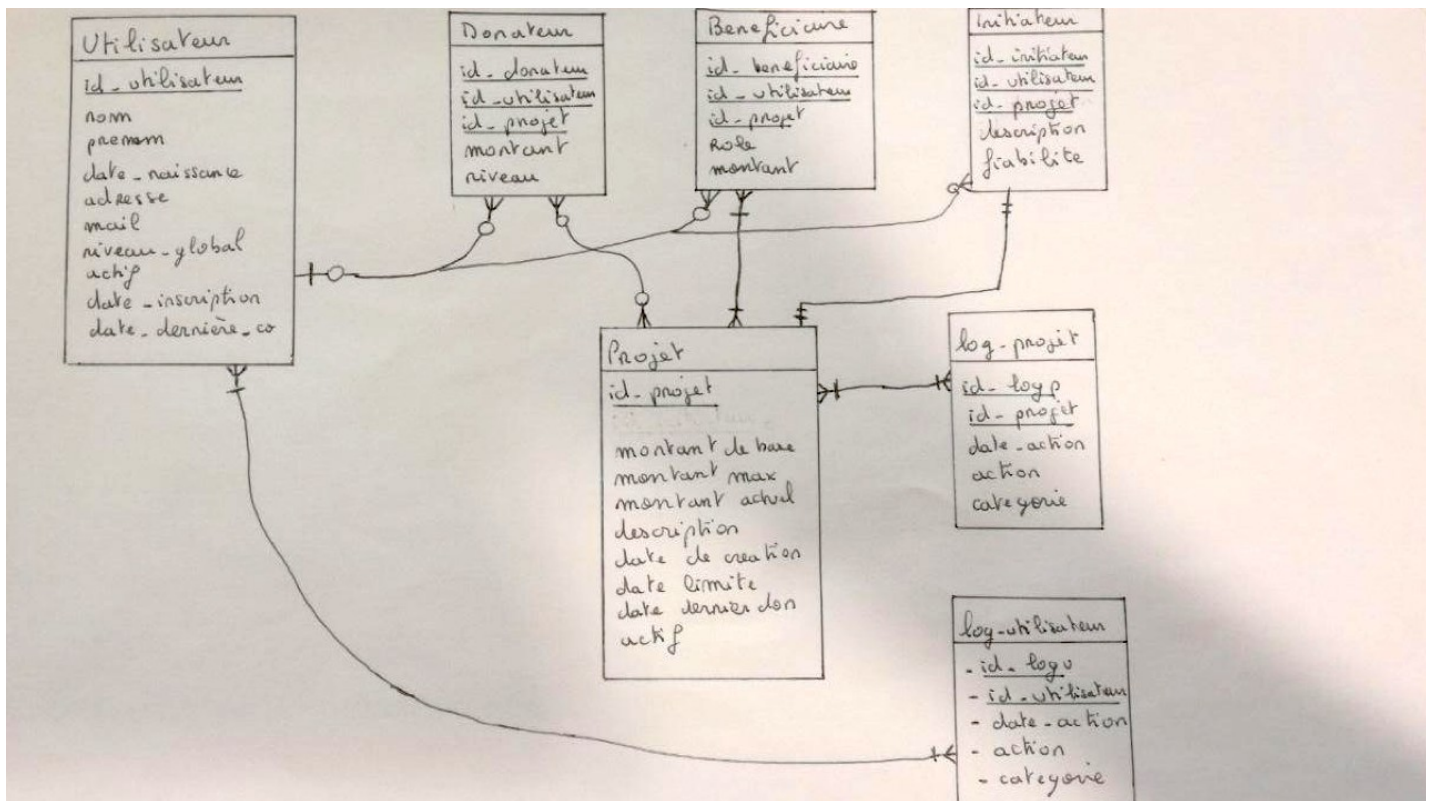 Utilisateur
id_utilisateur
nom
prenom
date_naissance
adresse
mail
niveau_global
actif
date_inscription
date_dernière_co
Donateur
id_donateur
id_utilisateur
id_projet
montant
niveau
Beneficiaire
id_beneficiaire
id_utilisateur
id_projet
Role
montant
Initiateur
id_initiateur
id_utilisateur
id_projet
description
fiabilite
Projet
id_projet
montant de base
montant max
montant actuel
description
date de creation
date limite
date dernier don
actif
log_projet
id_logp
id_projet
date_action
action
categorie
log_utilisateur
- id_logu
- id_utilisateur
- date_action
- action
- categorie